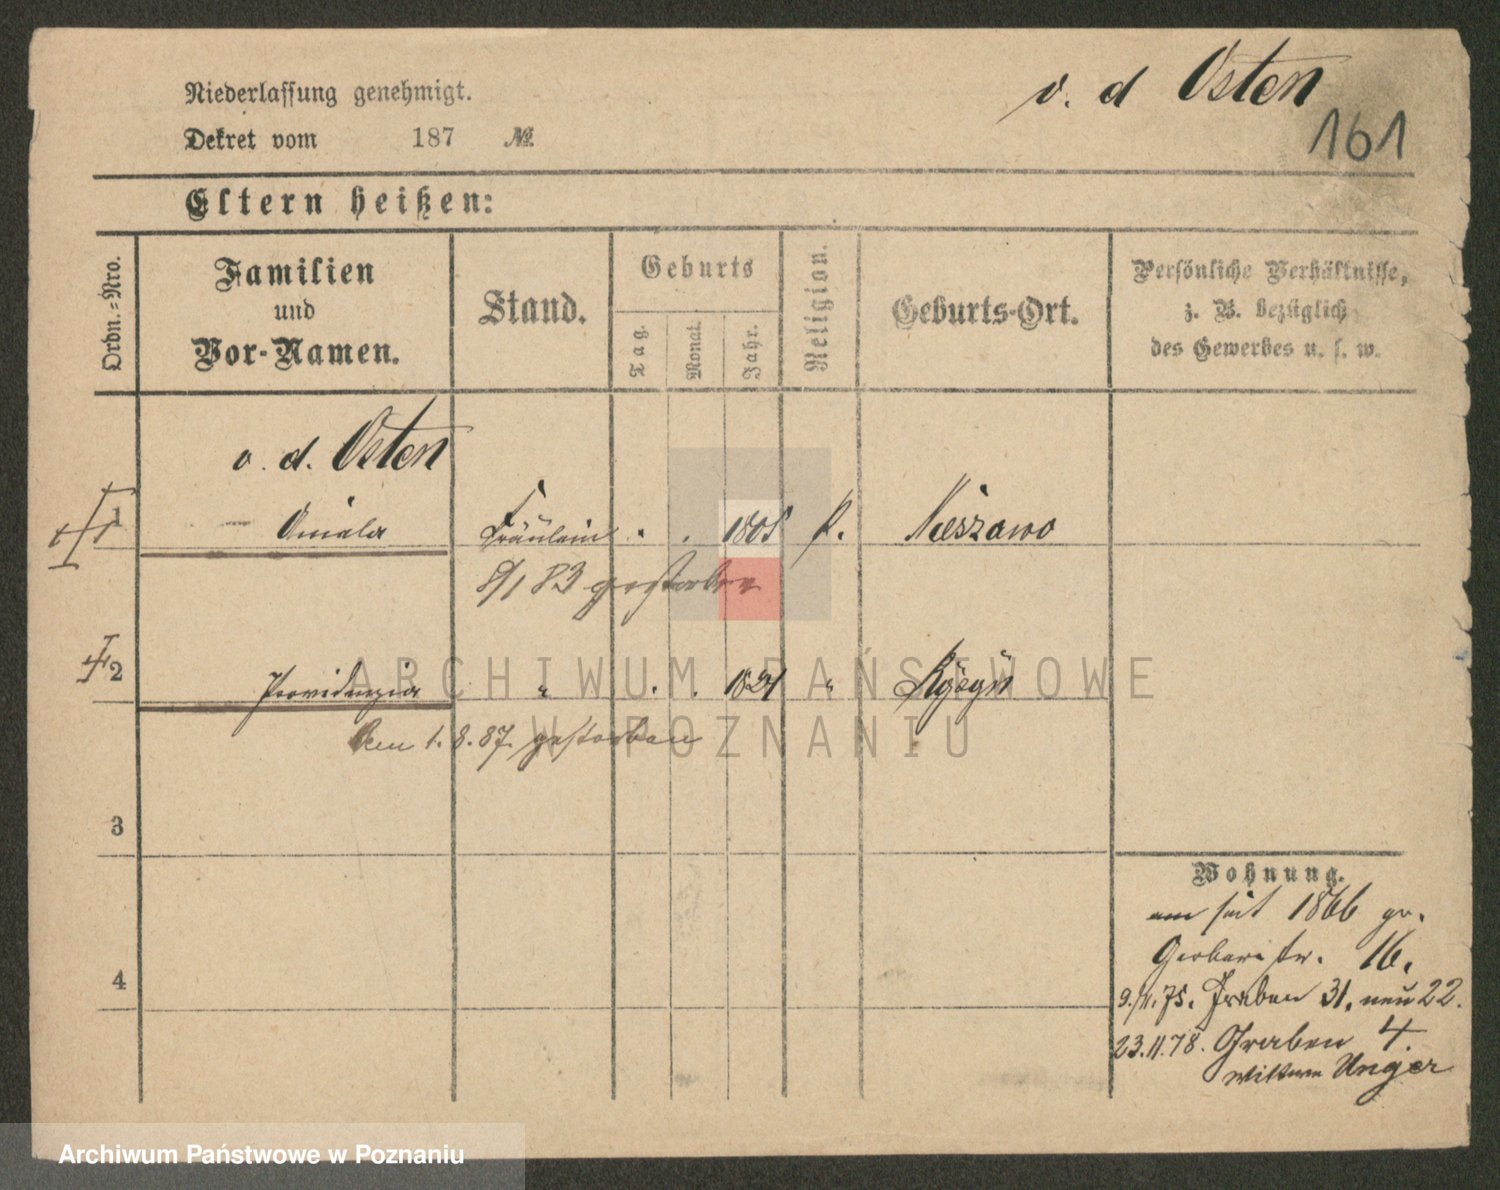 v. d Osten
161
Niederlassung genehmigt.
Dekret vom 187 №
Eltern heißen:
Ordn.=Nro.
Familien
und
Vor-Namen.
Stand.
Geburts
Tag.
Monat.
Jahr.
Religion.
Geburts-Ort.
Persönliche Verhältnisse,
z. B. bezüglich
des Gewerbes u. s. w.
v. d. Osten
1 Fräulein 1805
8/1 83 gestorben
2 Providenzia " . . "
den 1. 8. 87. gestorben
3
4
Wohnung.
seit 1866 gr.
Gerberstr. 16.
9./11.75. Graben 31. neu 22.
23.11.78. Graben 4.
Unger
ARCHIWUM PAŃSTWOWE
W POZNANIU
Archiwum Państwowe w Poznaniu